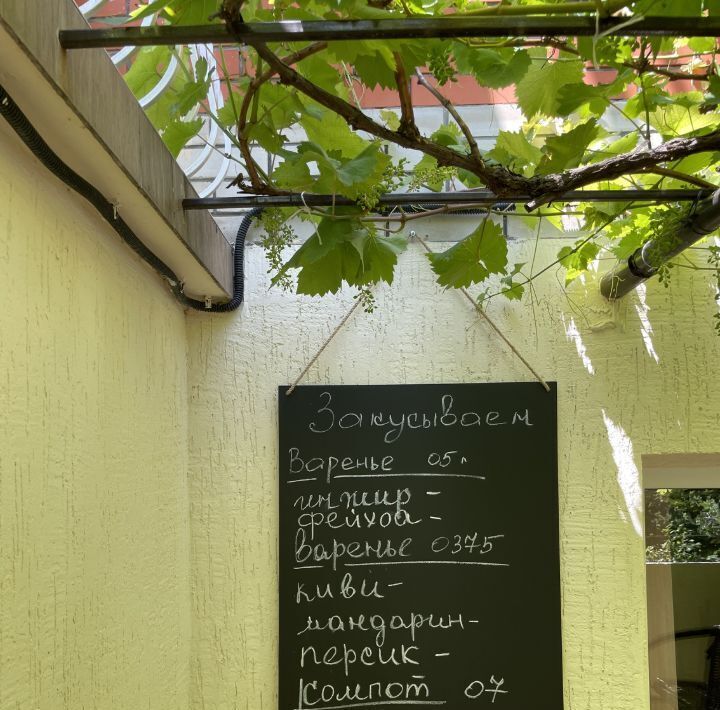 Закусываем
Варенье 05л
инжир -
фейхоа -
варенье 0375
киви -
мандарин -
персик -
Компот 07